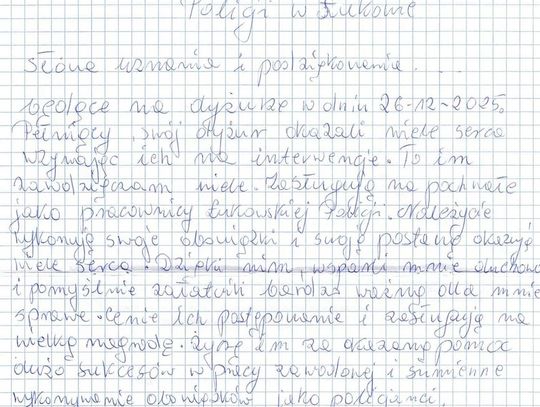 Poligi w Łukowie
słowa uznania i podziękowania . . .
będące na dyżurze w dniu 26-12-2025.
Pełniący swój dyżur okazali wiele serca
wzywając ich na interwencję. To im
zawdzięczam wiele. Zasługują na pochwałe
jako pracownicy Łukowskiej Poligi. Należycie
wykonują swoje obowiązki i swoją postawą okazują
wiele serca. Dzięki nim, wsparli mnie duchowo
i pomyślnie załatwili bardzo ważną dla mnie
sprawe. Cenie ich postępowanie i zasługują na
wielką nagrodę. Życzę im za okazaną pomoc
dużo sukcesów w pracy zawodowej i sumienne
wykonywanie obowiązków jako policjanci.